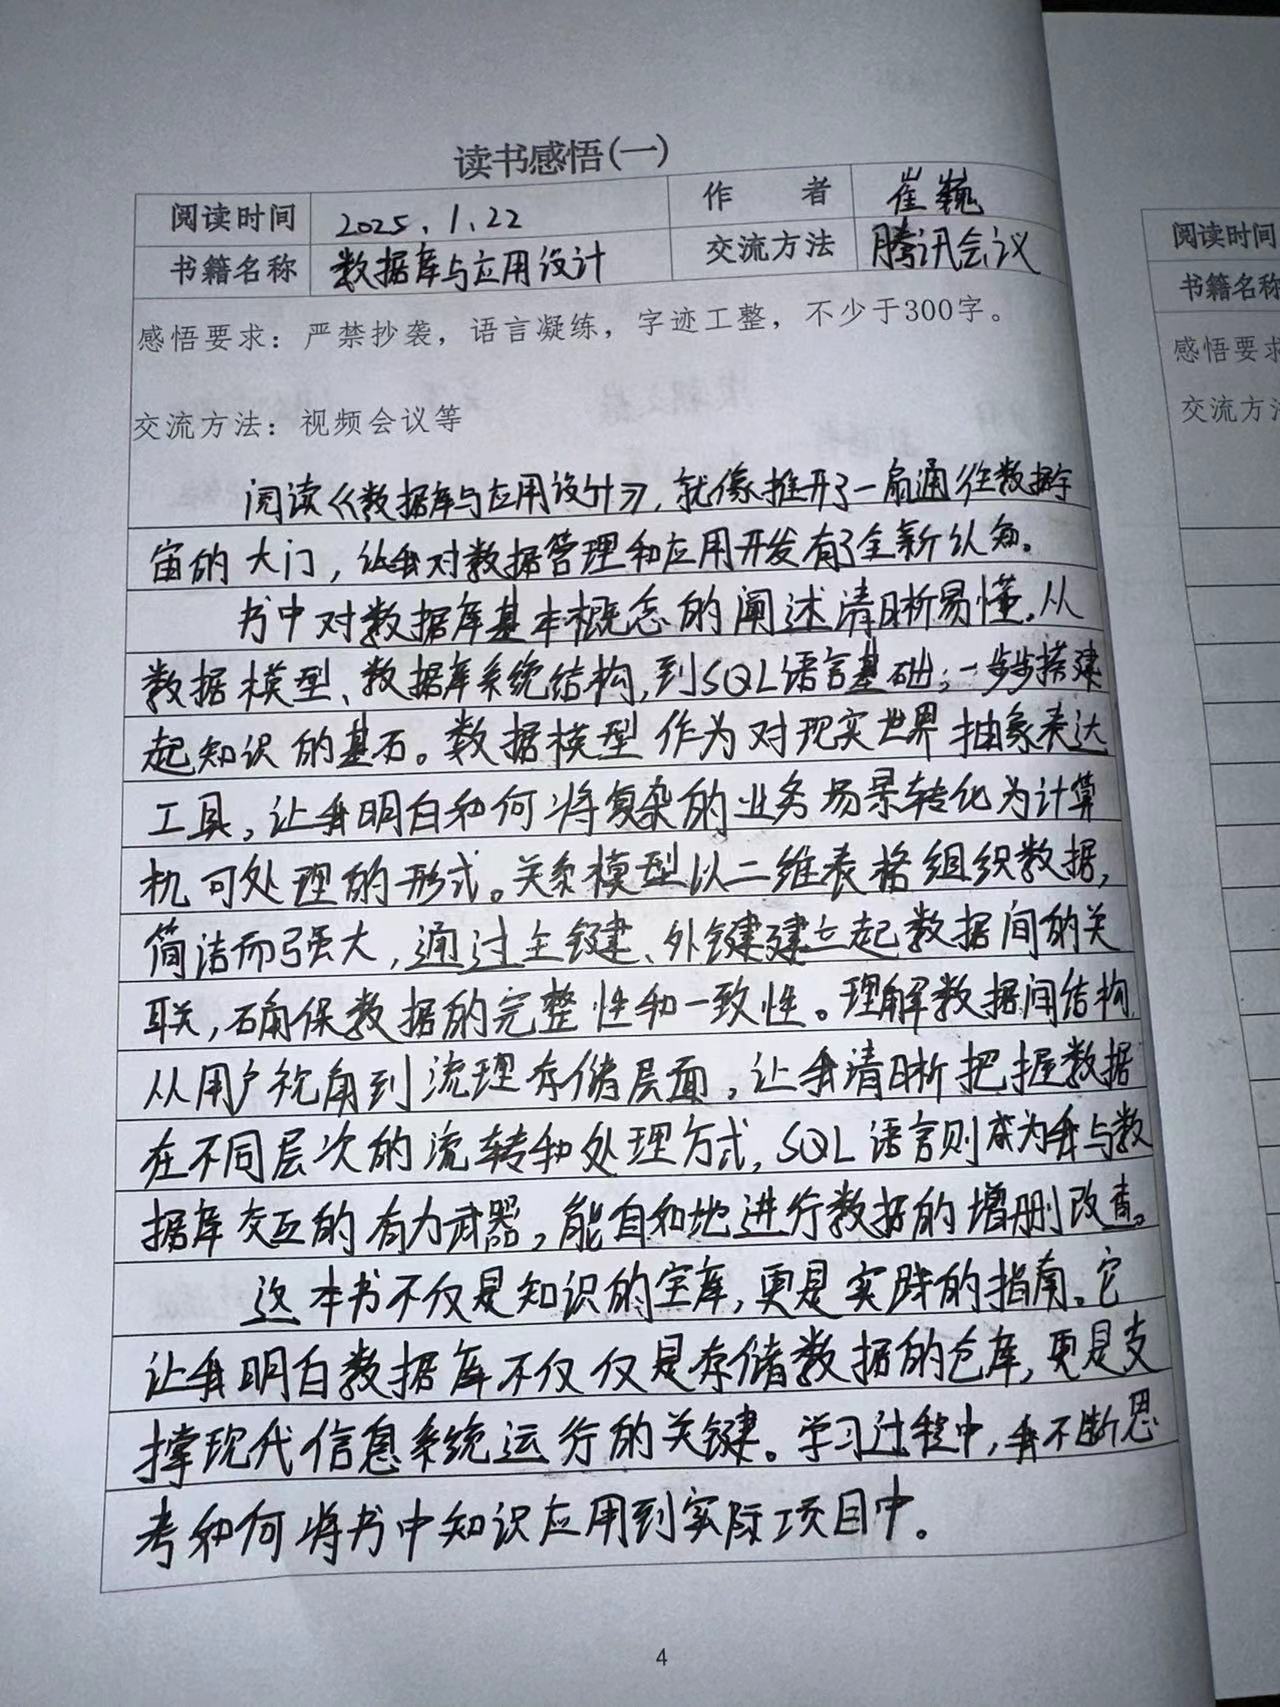 读书感悟(一)
阅读时间 2025.1.22 作者 崔巍
书籍名称 数据库与应用设计 交流方法 腾讯会议
感悟要求：严禁抄袭，语言凝练，字迹工整，不少于300字。
交流方法：视频会议等
阅读《数据库与应用设计》，就像推开了一扇通往数据宇
宙的大门，让我对数据管理和应用开发有了全新认知。
书中对数据库基本概念的阐述清晰易懂，从
数据模型、数据库系统结构，到SQL语言基础，一步步搭建
起知识的基石。数据模型作为对现实世界抽象表达
工具，让我明白如何将复杂的业务场景转化为计算
机可处理的形式。关系模型以二维表格组织数据，
简洁而强大，通过主键、外键建立起数据间的关
联，确保数据的完整性和一致性。理解数据间结构，
从用户视角到流理存储层面，让我清晰把握数据
在不同层次的流转和处理方式，SQL语言则成为我与数
据库交互的有力武器，能自如地进行数据的增删改查。
这本书不仅是知识的宝库，更是实践的指南。它
让我明白数据库不仅仅是存储数据的仓库，更是支
撑现代信息系统运行的关键。学习过程中，我不断思
考如何将书中知识应用到实际项目中。
4
阅读时间
书籍名称
感悟要求
交流方法